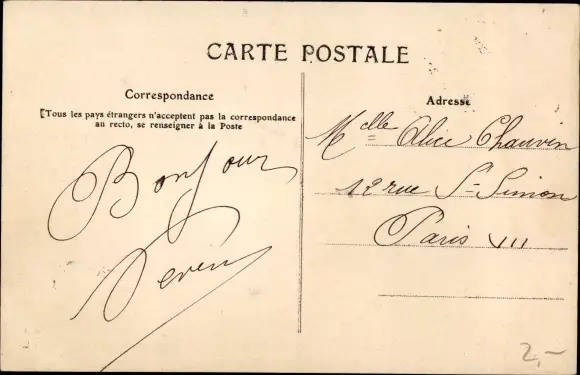 CARTE POSTALE
Correspondance
[Tous les pays étrangers n'acceptent pas la correspondance
au recto, se renseigner à la Poste
Bonjour
Adresse
Mclle Alice Chauvin
12 rue St= Simon
Paris VII
2,-